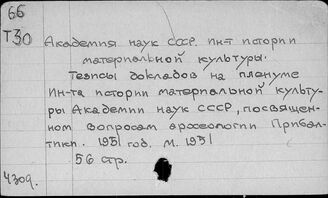 66
Т30
Академия наук СССР. ин-т истории
материальной культуры.
Тезисы докладов на пленуме
Ин-та истории материальной культу-
ры Академии наук СССР, посвящен-
ном вопросам археологии Прибал-
тики. 1951 год. М. 1951
56 стр.
4309.